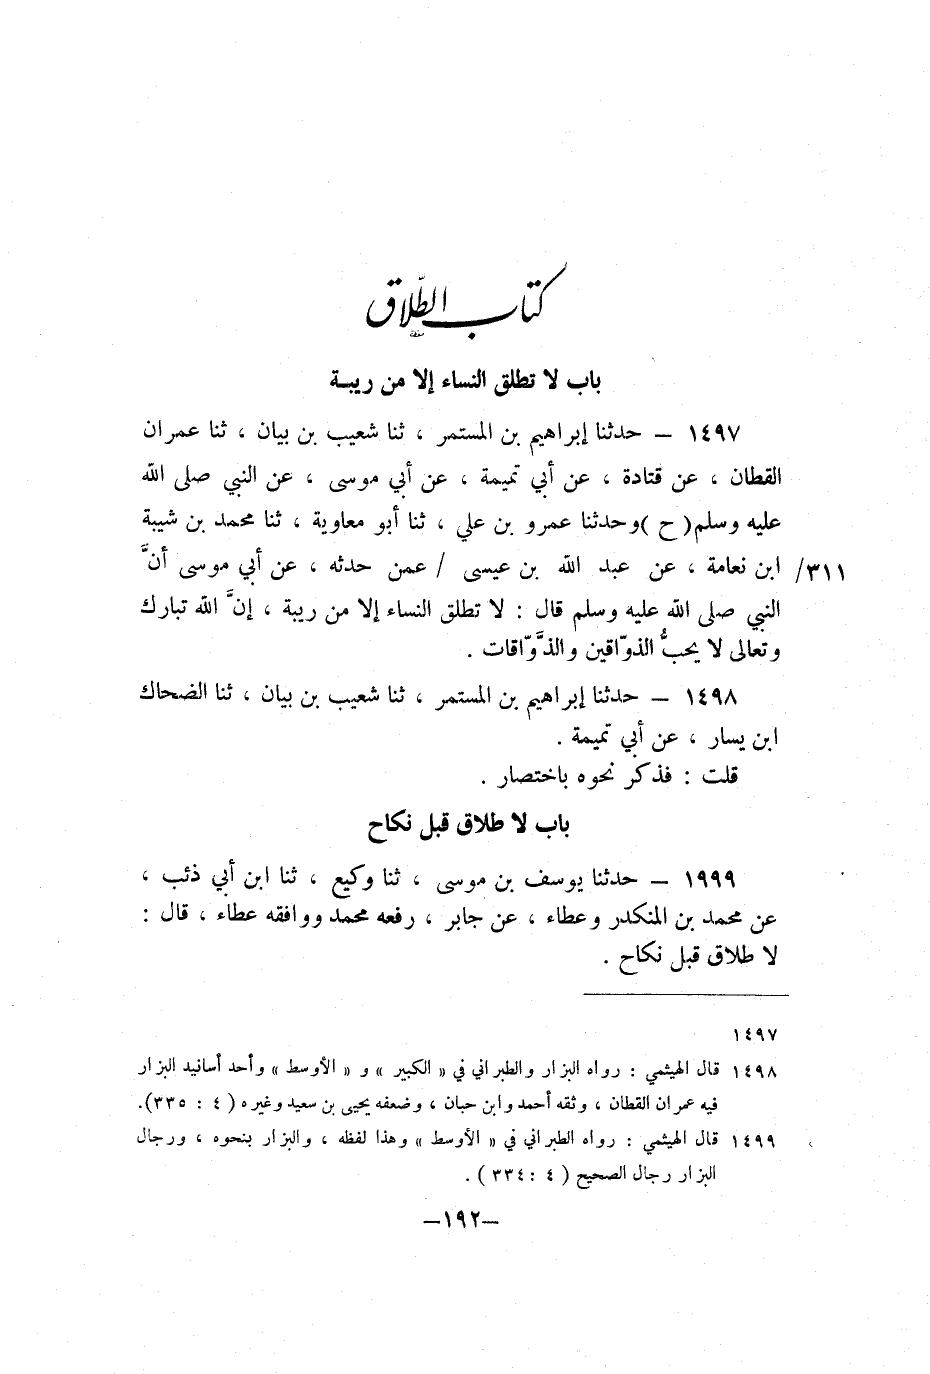 كتاب الطّلاق
باب لا تطلق النساء إلا من ريبـة
١٤٩٧ – حدثنا إبراهيم بن المستمر ، ثنا شعيب بن بيان ، ثنا عمران
القطان ، عن قتادة ، عن أبي تميمة ، عن أبي موسى ، عن النبي صلى الله
عليه وسلم( ح )وحدثنا عمرو بن علي ، ثنا أبو معاوية ، ثنا محمد بن شيبة
٣١١/ ابن نعامة ، عن عبد الله بن عيسى / عمن حدثه ، عن أبي موسى أنَّ
النبي صلى الله عليه وسلم قال : لا تطلق النساء إلا من ريبة ، إنَّ الله تبارك
وتعالى لا يحبُّ الذوّاقين والذَّوّاقات .
١٤٩٨ – حدثنا إبراهيم بن المستمر ، ثنا شعيب بن بيان ، ثنا الضحاك
ابن يسار ، عن أبي تميمة .
قلت : فذكر نحوه باختصار .
باب لا طلاق قبل نكاح
١٩٩٩ – حدثنا يوسف بن موسى ، ثنا وكيع ، ثنا ابن أبي ذئب ،
عن محمد بن المنكدر وعطاء ، عن جابر ، رفعه محمد ووافقه عطاء ، قال :
لا طلاق قبل نكاح .
١٤٩٧
١٤٩٨ قال الهيثمي : رواه البزار والطبراني في « الكبير » و « الأوسط » وأحد أسانيد البزار
فيه عمران القطان ، وثقه أحمد وابن حبان ، وضعفه يحيى بن سعيد وغيره ( ٤ : ٣٣٥).
١٤٩٩ قال الهيثمي : رواه الطبراني في « الأوسط » وهذا لفظه ، والبزار بنحوه ، ورجال
البزار رجال الصحيح ( ٤ : ٣٣٤ ) .
–١٩٢–